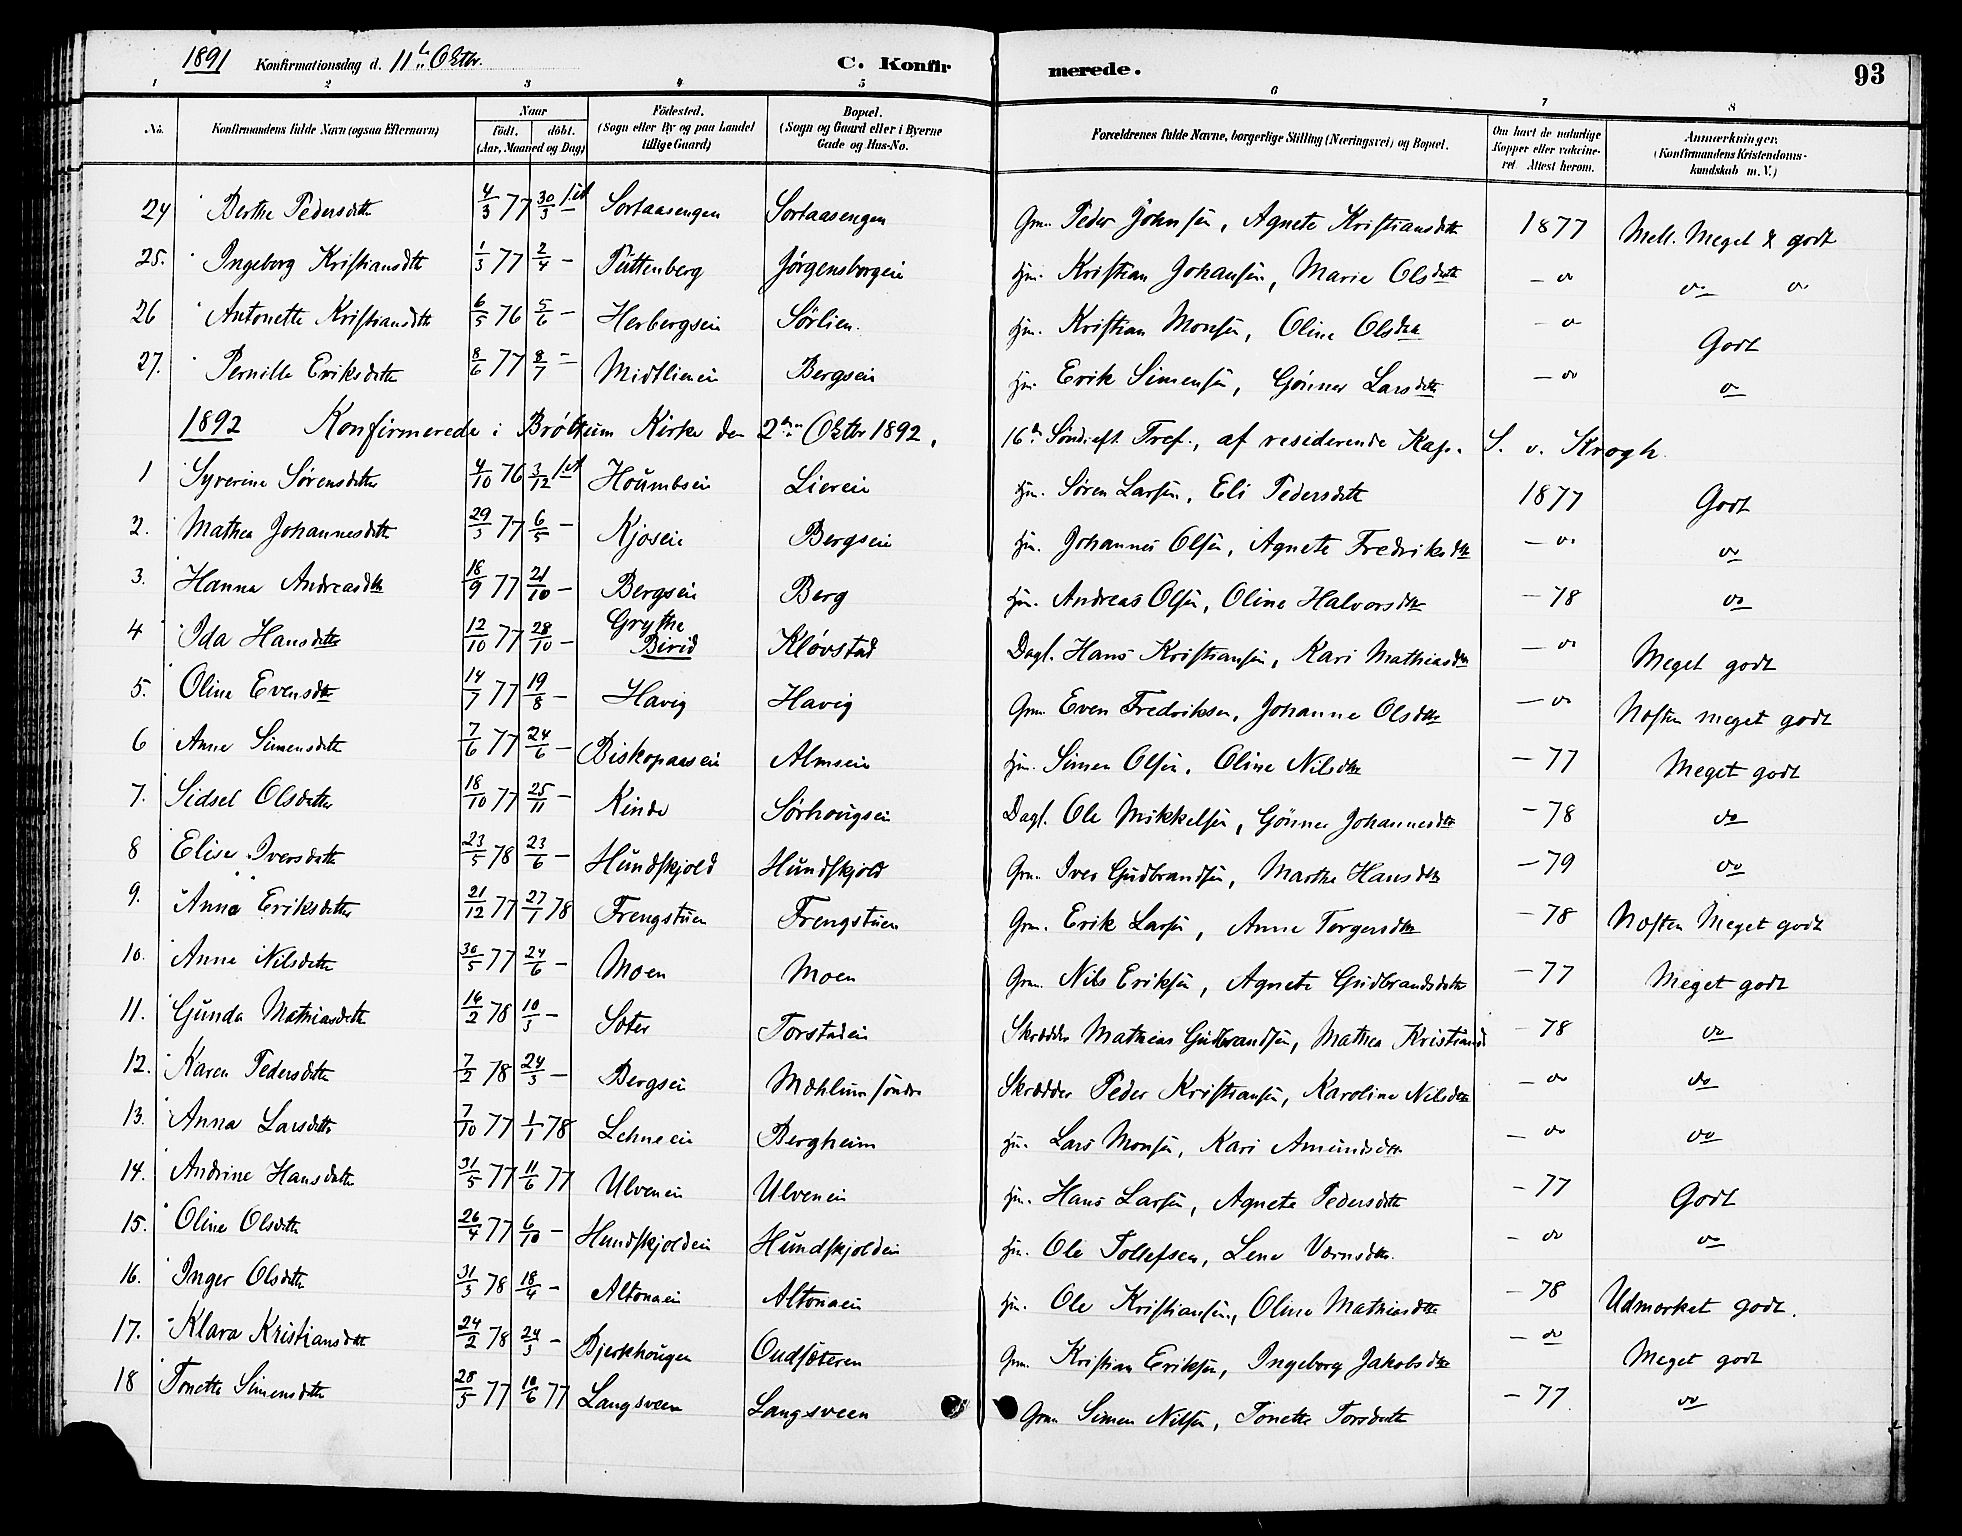 1891 Konfirmationsdag d. 11te Oktbr. C. Konfirmerede. 93
1 2 3 4 5 6 7 8
No. Konfirmandens fulde Navn (ogsaa Efternavn) Naar født. døbt. (Aar, Maaned og Dag) Födested. (Sogn eller By og paa Landet tillige Gaard) Bopæl. (Sogn og Gaard eller i Byerne Gade og Hus-No. Forældrenes fulde Navne, borgerlige Stilling (Næringsvei) og Bopæl. Om havt de naturlige Kopper eller vakcineret Attest herom. Anmærkninger. (Konfirmandens Kristendomskundskab m. V.)
24 Berthe Pedersdtr 4/3 77 30/3 s.A. Sortaasengen Sortaasengen Grm. Peder Johnsen, Agnete Kristiansdtr 1877 Mell. Meget & godt
25. Ingeborg Kristiansdtr 1/3 77 2/4 - Püttenberg Jørgensborgeie Hm. Kristian Johansen, Marie Olsdtr - do do do
26 Antonette Kristiansdtr 6/5 76 5/6 - Herbergseie Sørlien. Hm. Kristian Monsen, Oline Olsdtr - do Godt
27. Pernille Eriksdtr 8/6 77 8/7 - Midtlieneie Bergseie Hm. Erik Simensen, Gönner Larsdtr - do do
1892 Konfirmerede i Brøttum Kirke den 2den Oktbr 1892, 16de Sönd. eft. Tref., af residerende Kap. S. v. Krogh.
1 Syverine Sørensdtr 4/10 76 3/12 s.A. Houmbseie Liereie Hm. Søren Larsen, Eli Pedersdtr 1877 Godt
2. Mathea Johannesdtr 29/3 77 6/5 - Kjoseie Bergseie Hm. Johannes Olsen, Agnete Fredriksdtr - do do
3. Hanna Andreasdtr 18/9 77 21/10 - Bergseie Berg Hm. Andreas Olsen, Oline Halvorsdtr - 78 do
4 Ida Hansdtr 12/10 77 28/10 - Grythe Birid Kløvstad Dagl. Hans Kristiansen, Kari Mathiasdtr - do Meget godt
5. Oline Evensdtr 14/7 77 19/8 - Havig Havig Grm. Even Fredriksen, Johanne Olsdtr - do Næsten meget godt
6 Anne Simensdtr 7/6 77 24/6 - Biskopaaseie Almseie Hm. Simen Olsen, Oline Nilsdtr - 77 Meget godt
7. Sidsel Olsdatter 18/10 77 25/11 - Kinde Sørhougseie Dagl. Ole Mikkelsen, Gönner Johannesdtr - 78 do
8 Elise Iversdatter 23/5 78 23/6 - Hundskjold Hundskjold Grm. Iver Gudbrandsen, Marthe Hansdtr - 79 do
9. Anna Eriksdatter 21/12 77 27/1 78 Frengstuen Frengstuen Grm. Erik Larsen, Anne Torgersdtr - 78 Næsten Meget godt
10. Anne Nilsdatter 30/5 77 24/6 - Moen Moen Grm. Nils Eriksen, Agnete Gudbrandsdatter - 77 Meget godt
11. Gunda Mathiasdtr 16/2 78 10/3 - Soter Torstadeie Skrædder Mathias Gudbrandsen, Mathea Kristiansd - 78 do
12. Karen Pedersdtr 7/2 78 24/3 - Bergseie Mæhlum søndre Skrædder Peder Kristiansen, Karoline Nilsdtr - do do
13. Anna Larsdtr 7/10 77 1/1 78 Lehneeie Bergheim Hm. Lars Monsen, Kari Amundsdtr - do do
14. Andrine Hansdatter 31/5 77 11/6 77 Ulveneie Ulveneie Hm. Hans Larsen, Agnete Pedersdtr - 77 Godt
15. Oline Olsdtr 26/4 77 6/10 - Hundskjoldeie Hundskjoldeie Hm. Ole Tollefsen, Lene Værnsdtr. - do do
16. Inger Olsdtr 31/3 78 18/4 - Altonaeie Altonaeie Hm. Ole Kristiansen, Oline Mathiasdtr - 78 Udmærket godt.
17. Klara Kristiansdtr 24/2 78 24/3 - Bjerkhougen Oudsæteren Grm. Kristian Eriksen, Ingeborg Jakobsdtr - do Meget godt
18 Tonette Simensdtr 28/5 77 10/6 77 Langsveen Langsveen Grm Simen Nilsen, Tonette Torsdatter - 77. do